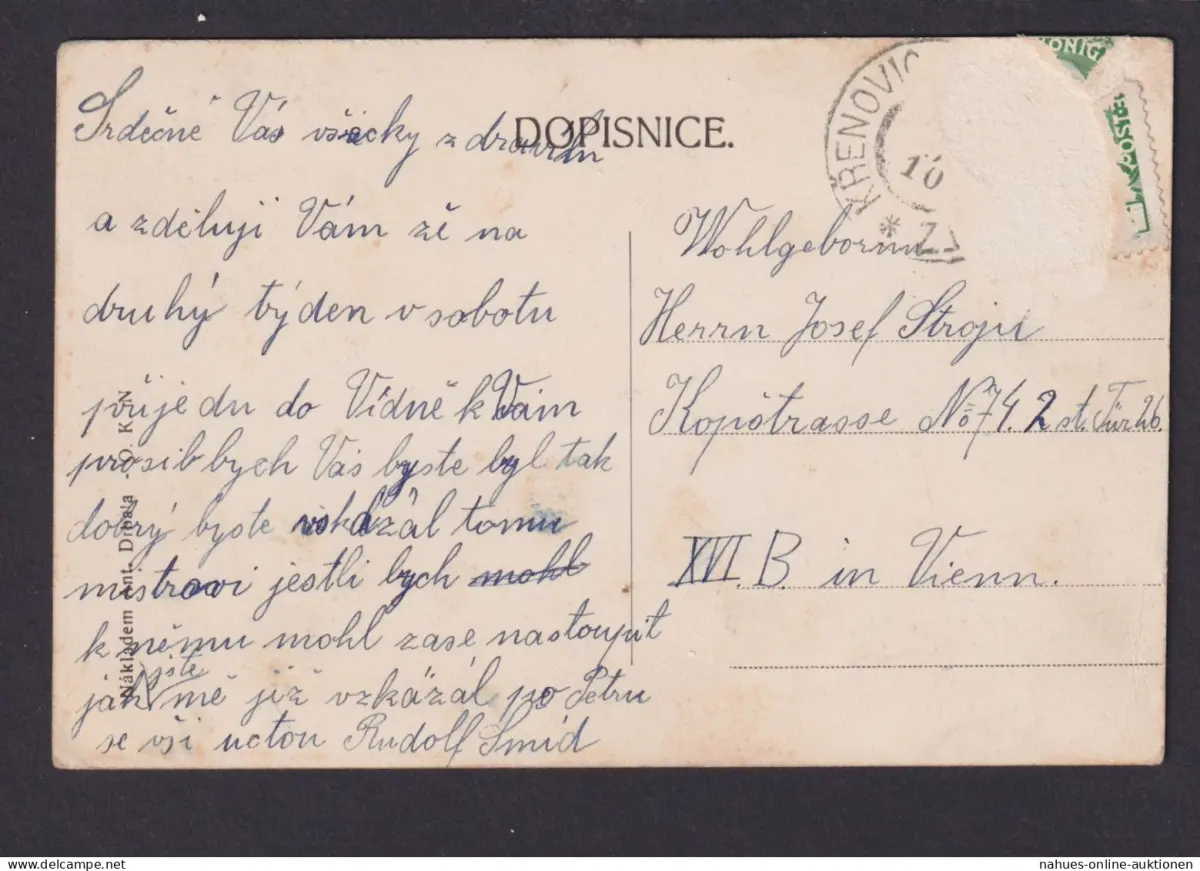 DOPISNICE.
Srdečně Vás všecky zdravím
a zděluji Vám že na
druhý týden v sobotu
přijedu do Vídně k Vám
prosib bych Vás byste byl tak
dobrý byste vskázál tomu
mistrovi jestli bych mohl
k němu mohl zase nastoupit
jak jste mě již vzkázál po Petru
se vší uctou Rudolf Smíd
KŘENOVIC
10
KÖNIG
POST
Wohlgebornn
Herrn Josef Stroju
Kopstrasse No 74. 2 st. Tür 26.
XVI. B in Vienn.
Nákladem Ant. Drbala
nahues-online-auktionen